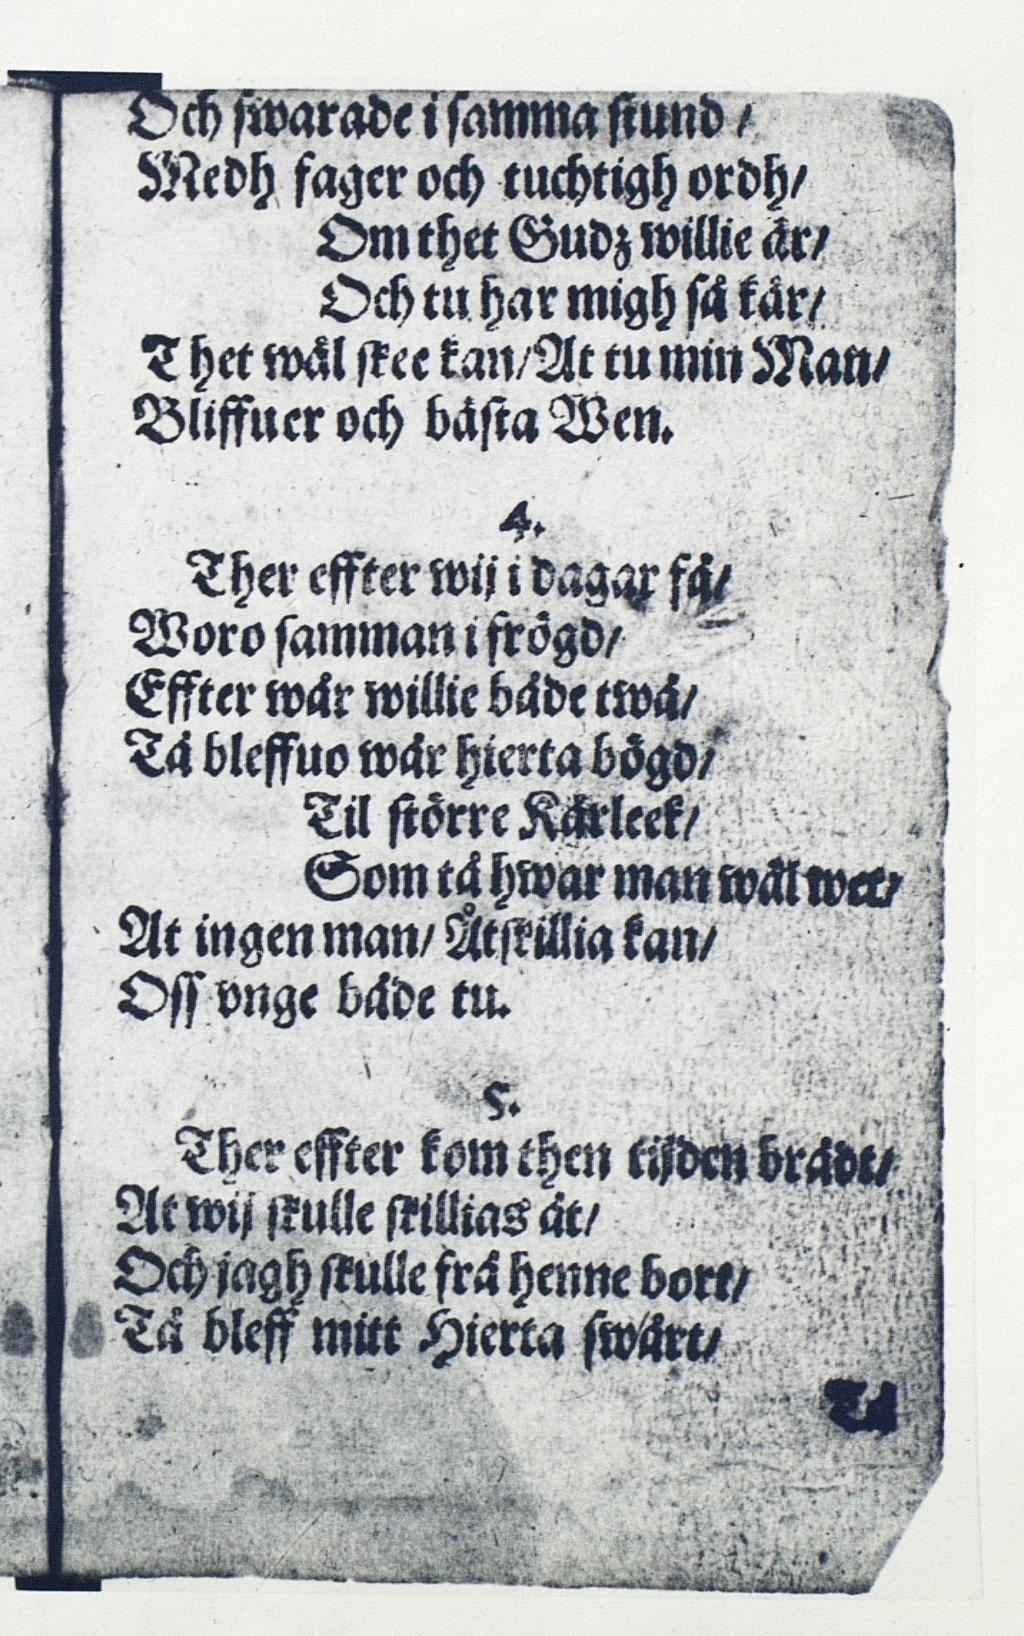 Och swarade i samma stund /
Medh fager och tuchtigh ordh/
Om thet Gudz willie är/
Och tu har migh så kär/
Thet wäl skee kan/ At tu min Man/
Bliffuer och bästa Wen.
4.
Ther effter wij i dagar få/
Woro samman i frögd/
Effter wår willie både twå/
Tå bleffuo wår hierta bögd/
Til större Kärleek/
Som tå hwar man wäl wet/
At ingen man/ Åtskillia kan/
Oss vnge både tu.
5.
Ther effter kom then tijden brådt/
At wij skulle skillias åt/
Och jagh skulle frå henne bort/
Tå bleff mitt Hierta swårt/